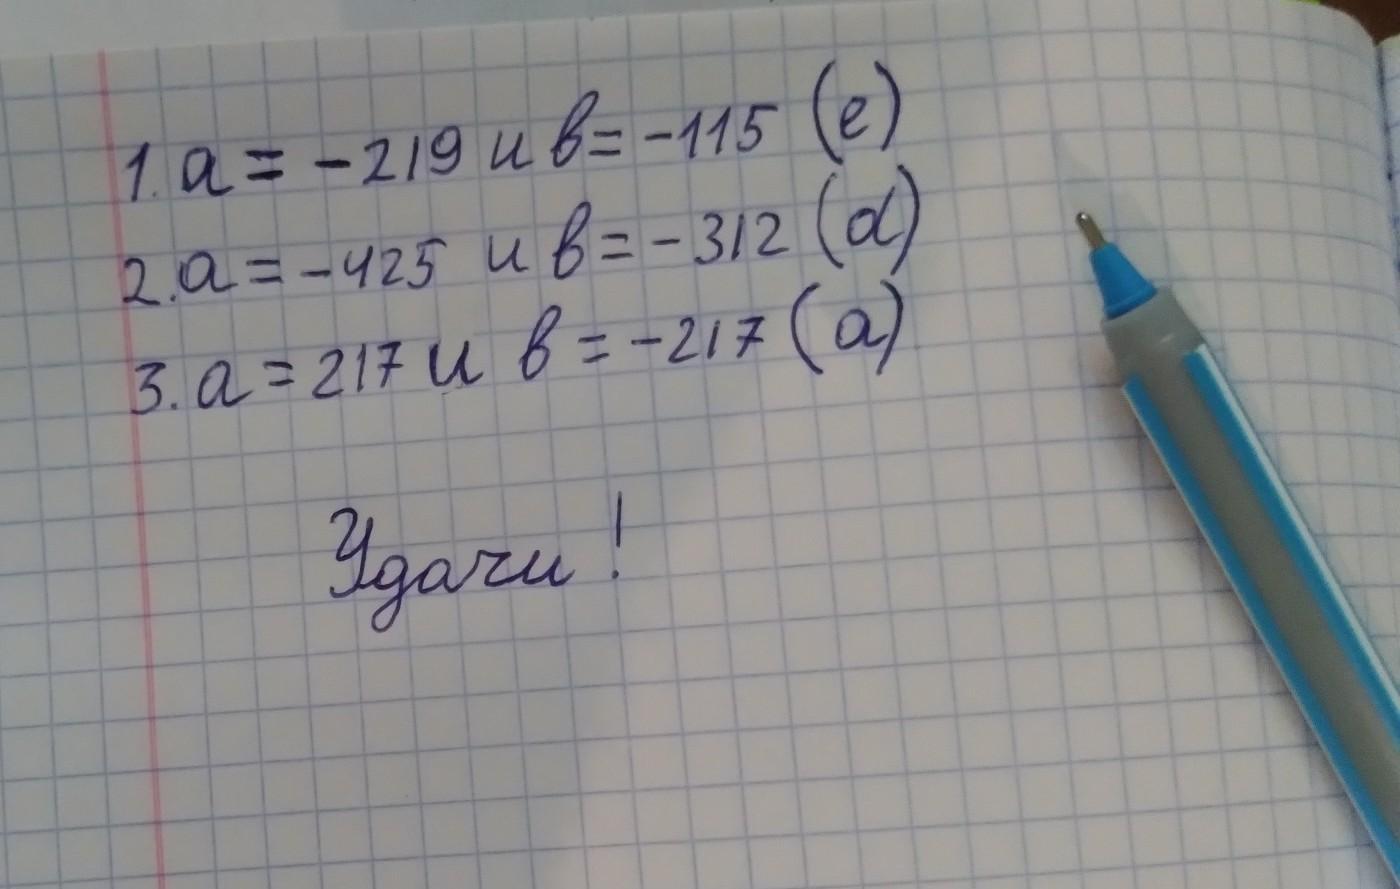 1. а = -219 и в = -115 (e)
2. а = -425 и в = -312 (d)
3. а = 217 и в = -217 (a)
Удачи!